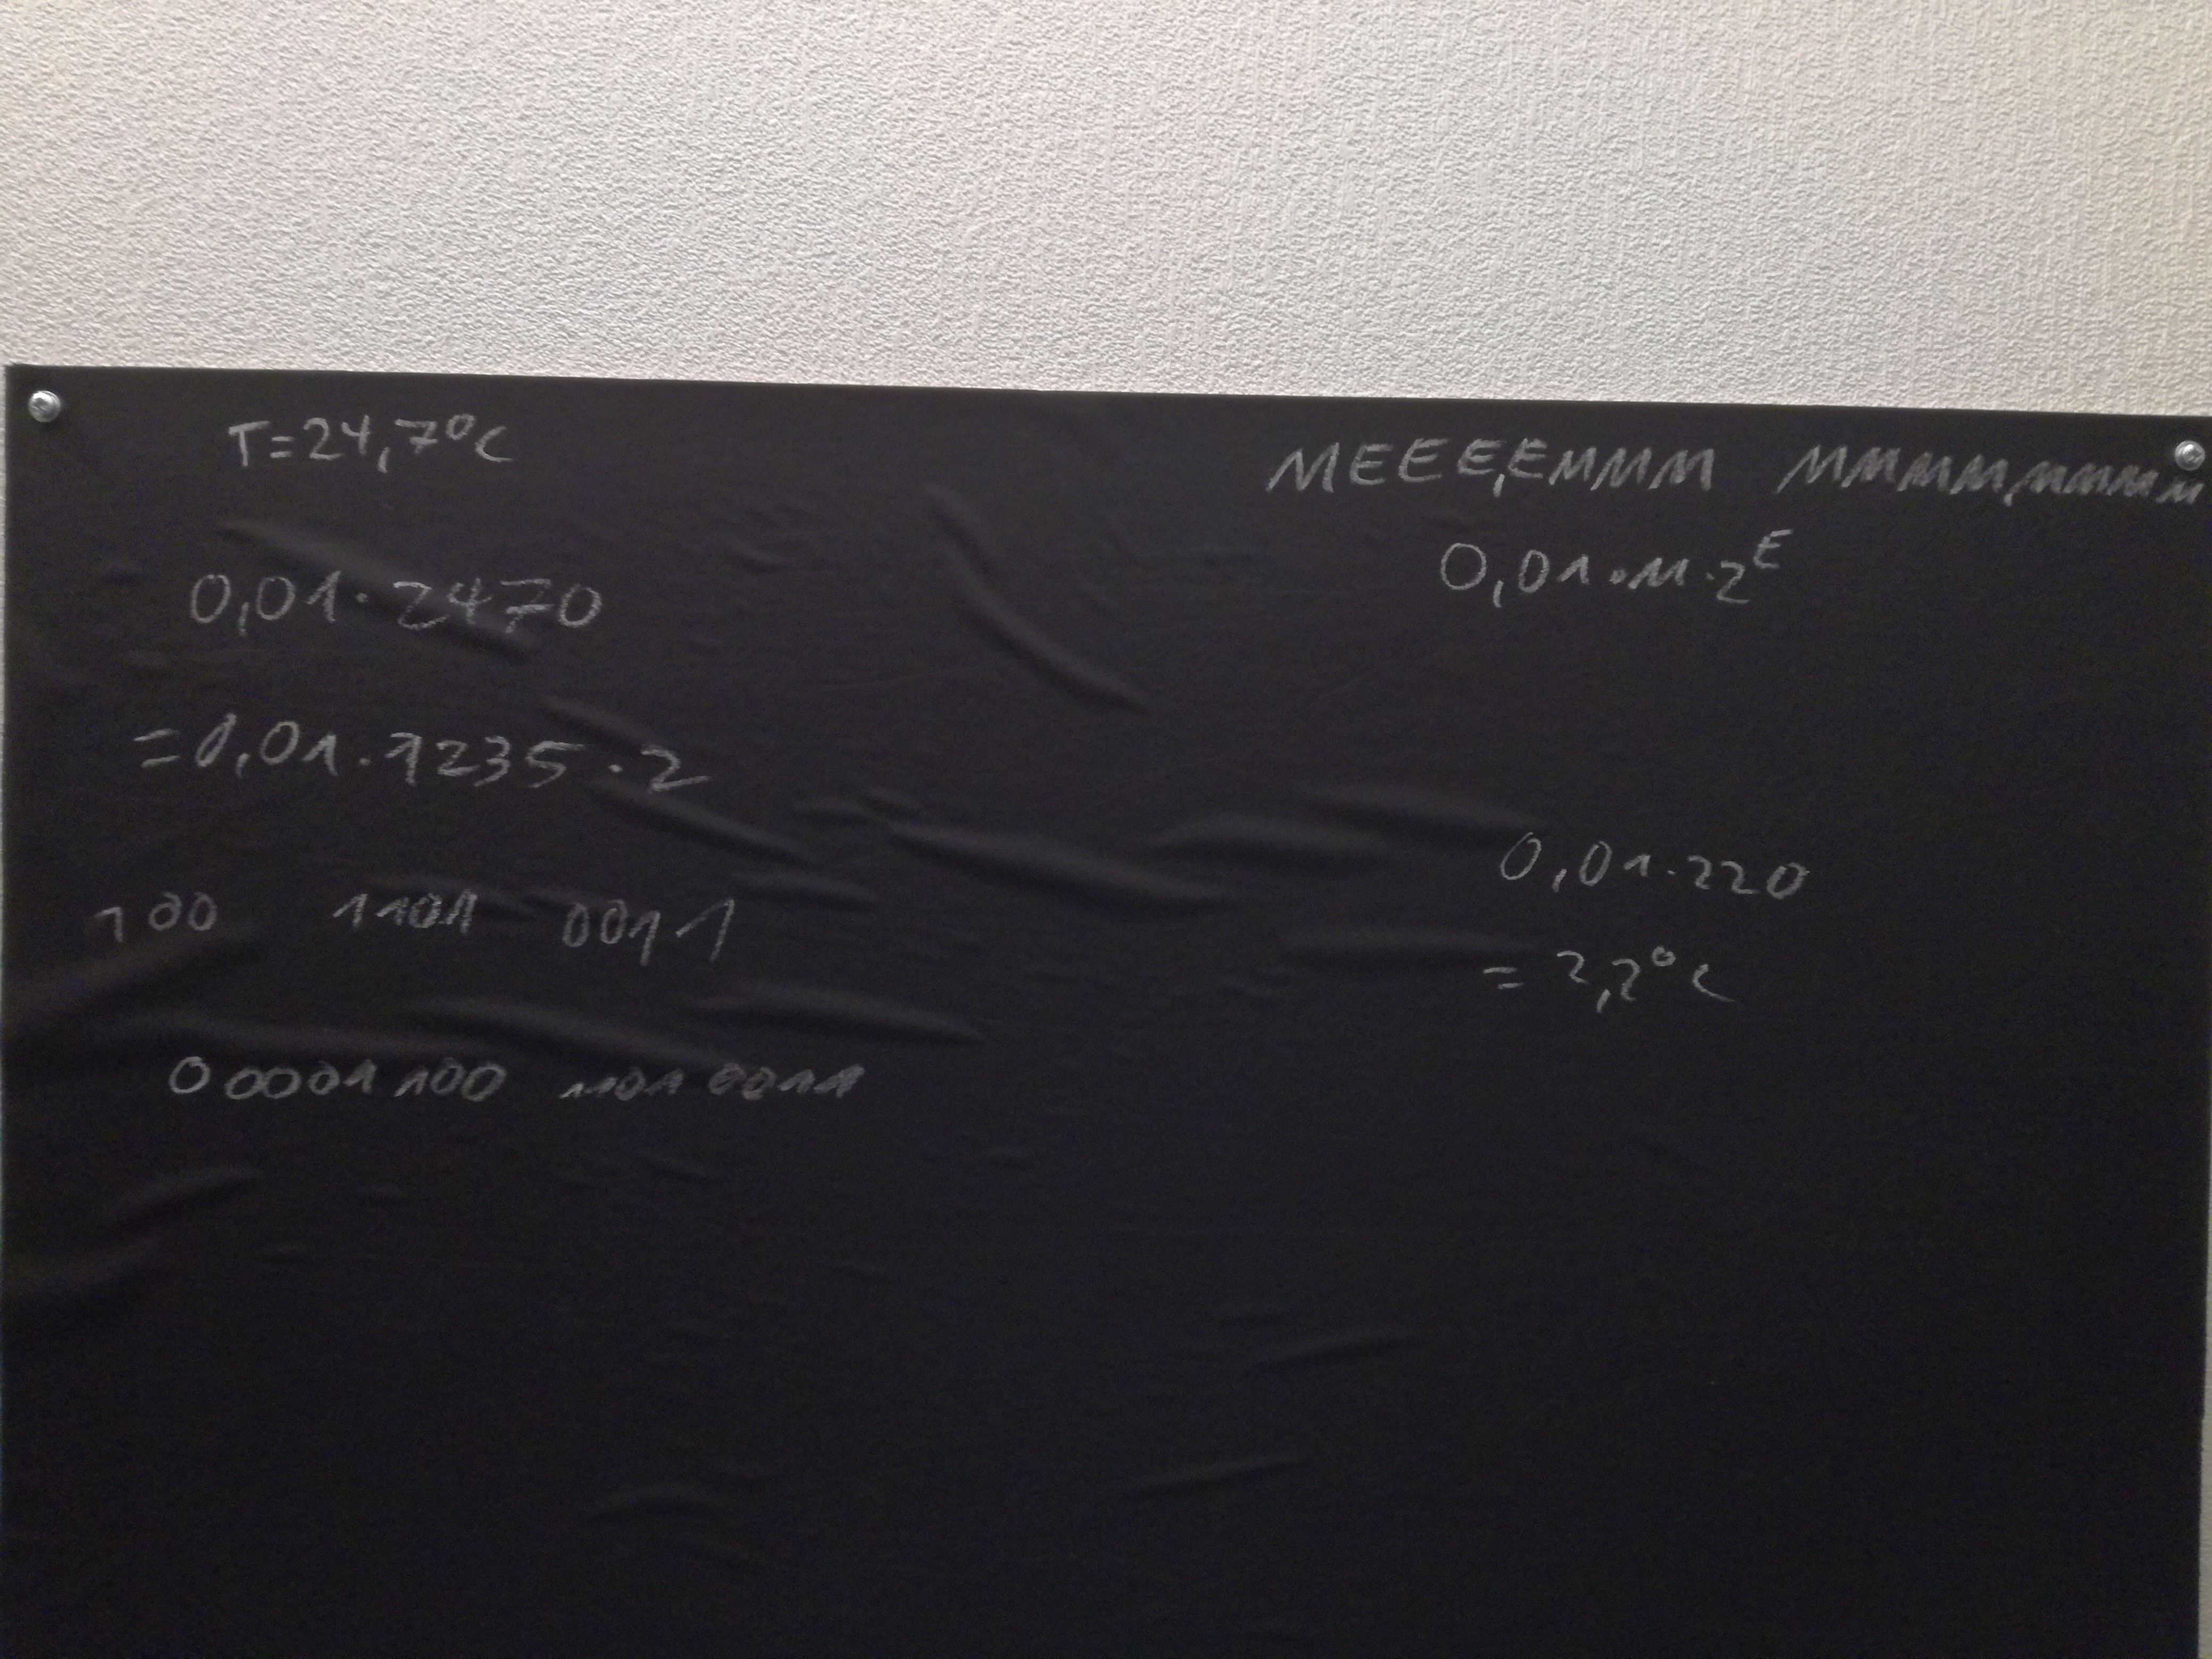 T=24,7°C
0,01·2470
=0,01·1235·2
100 1101 0011
00001100 11010011
MEEE,EMMM MMMM,MMMM
0,01·M·2^E
0,01·220
=2,2°C